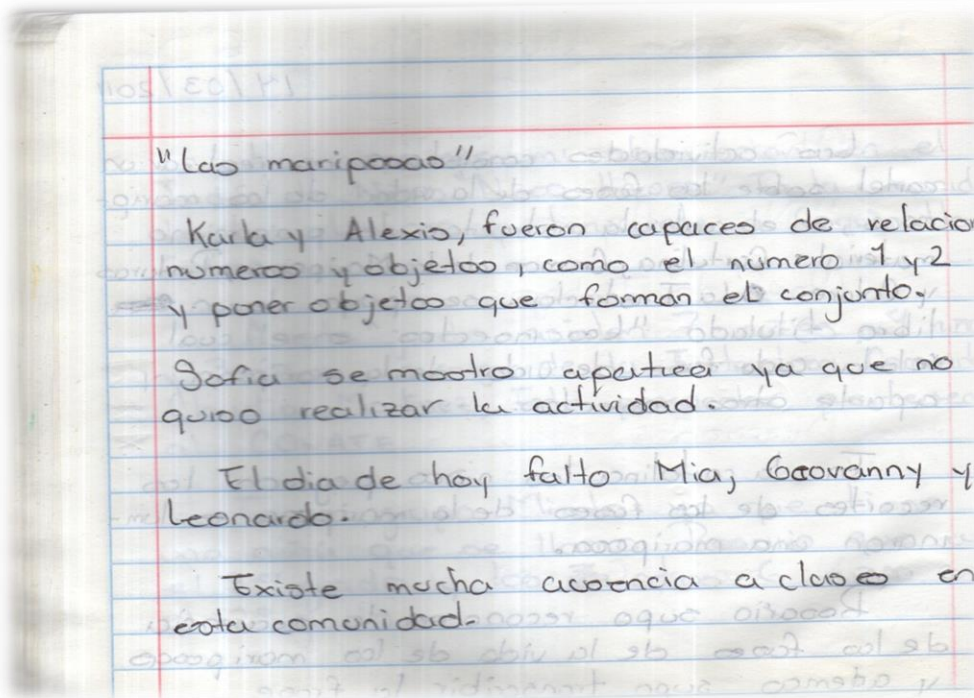 "Las mariposas"
Karla y Alexis, fueron capaces de relacio
numeros y objetos, como el número 1 y 2
y poner objetos que forman el conjunto.
Sofia se mostro apatica ya que no
quiso realizar la actividad.
El dia de hoy falto Mia, Geovanny y
Leonardo.
Existe mucha ausencia a clases en
esta comunidad.